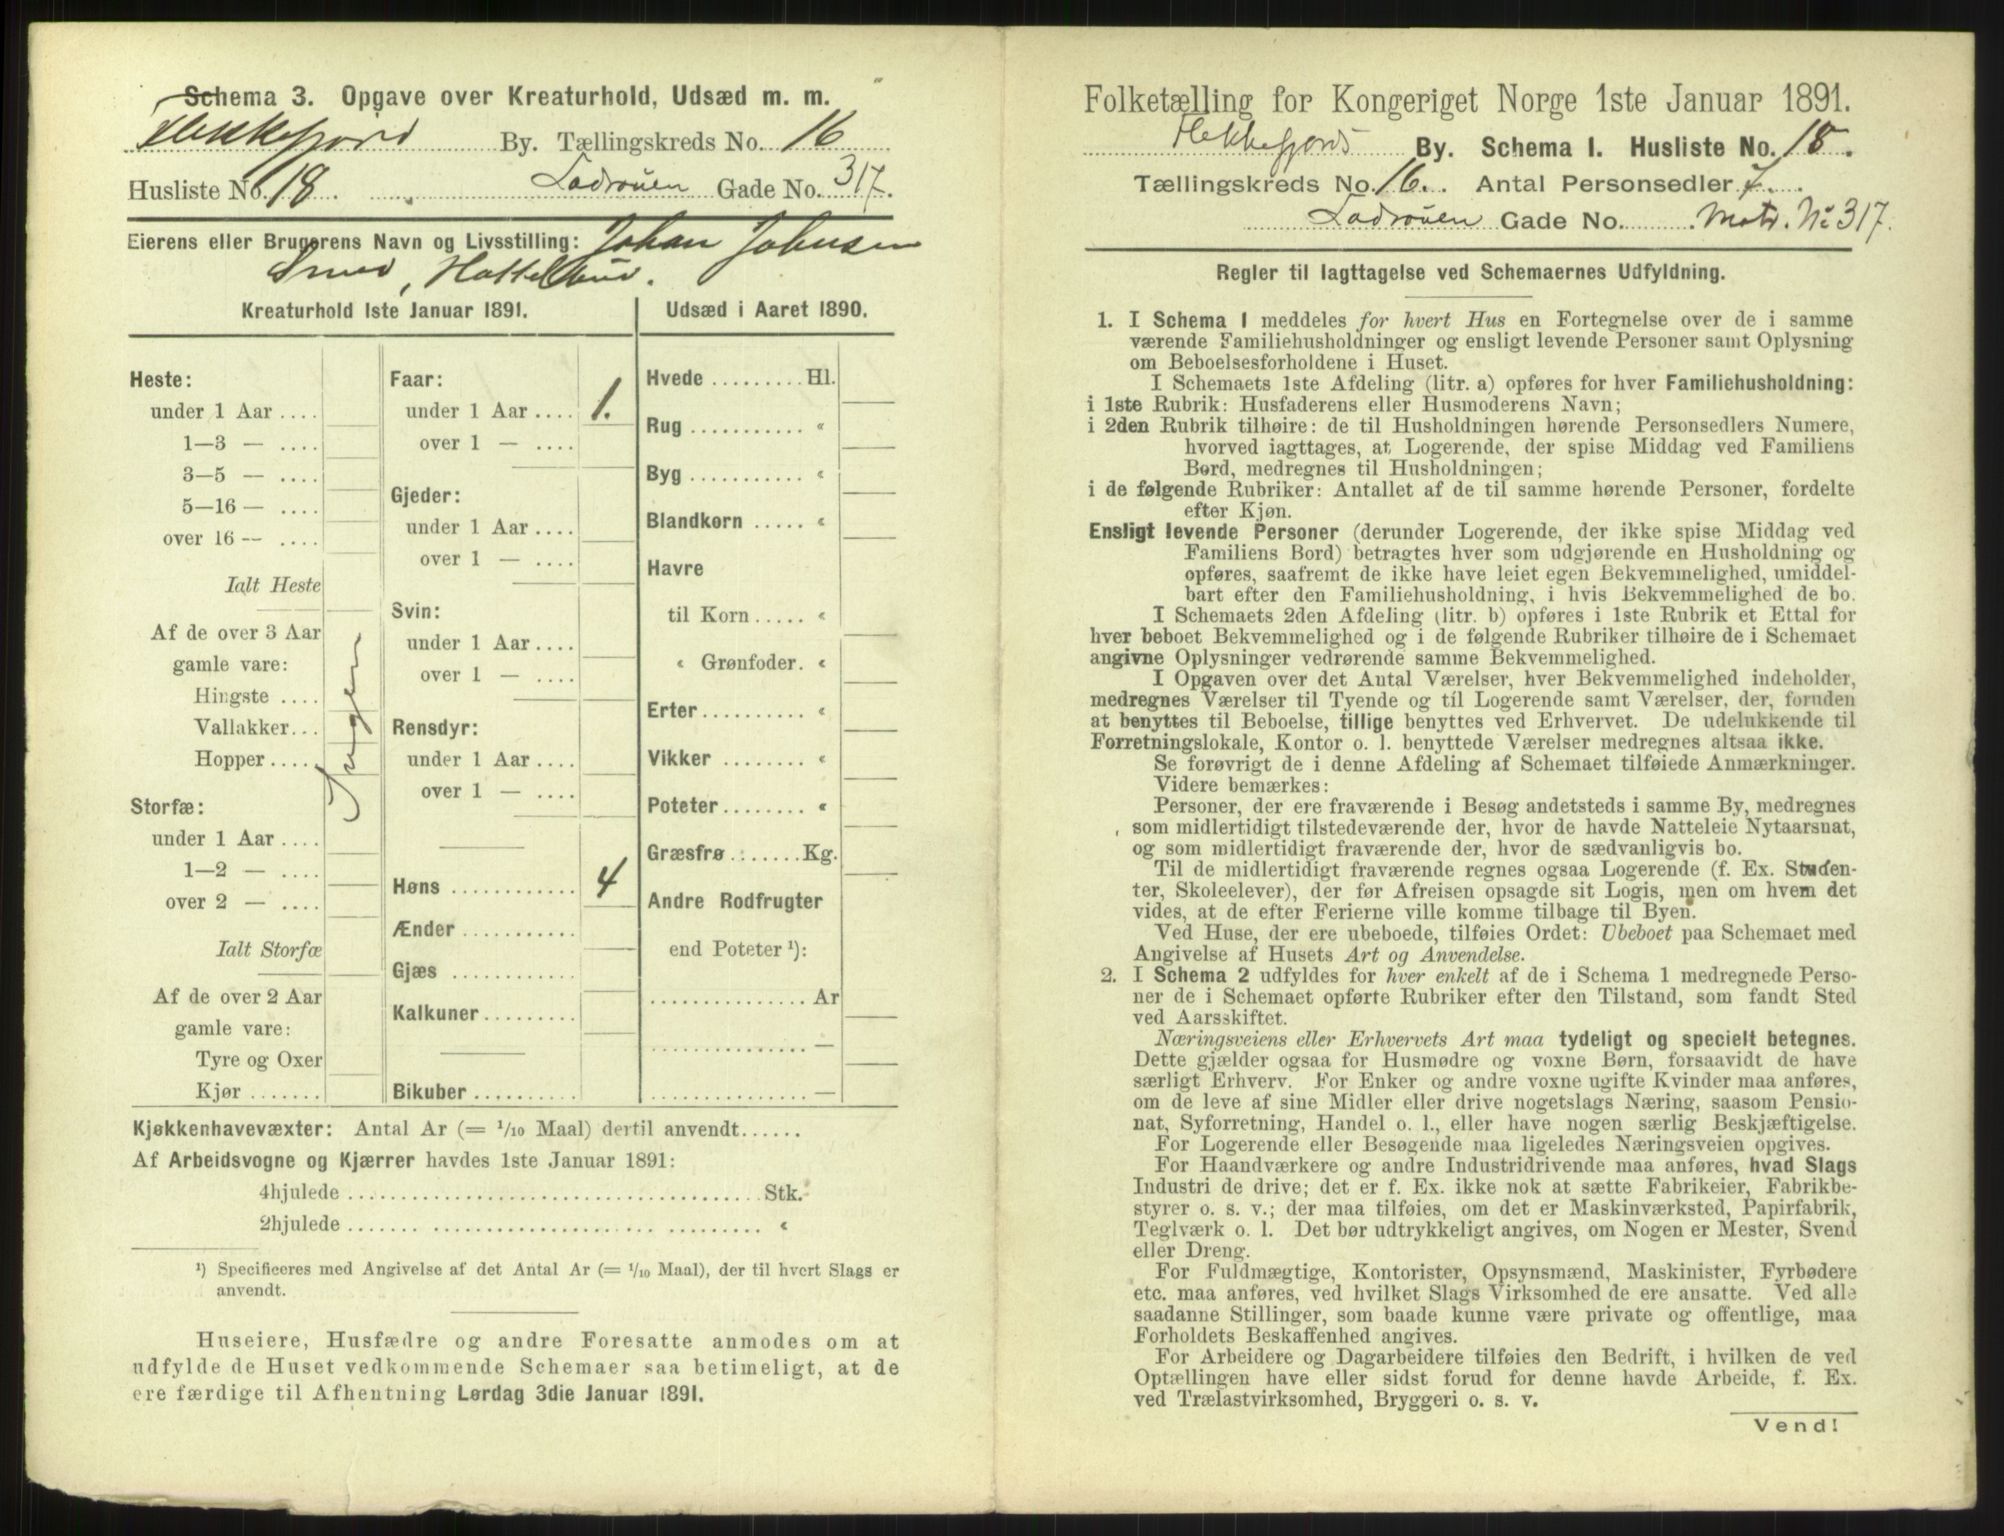 Schema 3. Opgave over Kreaturhold, Udsæd m. m.
Flekkefjord By. Tællingskreds No. 16
Husliste No. 18. Gade No. 317.
Eierens eller Brugerens Navn og Livsstilling: Johan Johnsen
Smed,
Kreaturhold 1ste Januar 1891.
Heste:
under 1 Aar ....
1—3 — ....
3—5 — ....
5—16 — ....
over 16 — ....
Ialt Heste
Af de over 3 Aar
gamle vare:
Hingste ....
Vallakker...
Hopper ....
Ingen
Storfæ:
under 1 Aar ....
1—2 — ....
over 2 — ....
Ialt Storfæ
Af de over 2 Aar
gamle vare:
Tyre og Oxer
Kjør .......
Faar:
under 1 Aar .... 1.
over 1 — ....
Gjeder:
under 1 Aar ....
over 1 — ....
Svin:
under 1 Aar ....
over 1 — ....
Rensdyr:
under 1 Aar ....
over 1 — ....
Høns ............ 4
Ænder ...........
Gjæs ............
Kalkuner .........
Bikuber ..........
Udsæd i Aaret 1890.
Hvede ......... Hl.
Rug ........... «
Byg ........... «
Blandkorn ..... «
Havre
til Korn ..... «
« Grønfoder. «
Erter .......... «
Vikker ........ «
Poteter ........ «
Græsfrø ....... Kg.
Andre Rodfrugter
end Poteter ¹):
............... Ar
............... —
............... —
Kjøkkenhavevæxter: Antal Ar (= 1/10 Maal) dertil anvendt......
Af Arbeidsvogne og Kjærrer havdes 1ste Januar 1891:
4hjulede ..................................... Stk.
2hjulede ..................................... «
¹) Specificeres med Angivelse af det Antal Ar (= 1/10 Maal), der til hvert Slags er
anvendt.
Huseiere, Husfædre og andre Foresatte anmodes om at
udfylde de Huset vedkommende Schemaer saa betimeligt, at de
ere færdige til Afhentning Lørdag 3die Januar 1891.
Folketælling for Kongeriget Norge 1ste Januar 1891.
Flekkefjords By. Schema I. Husliste No. 18.
Tællingskreds No. 16. Antal Personsedler 7.
Gade No. Matr. No 317.
Regler til Iagttagelse ved Schemaernes Udfyldning.
1. I Schema 1 meddeles for hvert Hus en Fortegnelse over de i samme
værende Familiehusholdninger og ensligt levende Personer samt Oplysning
om Beboelsesforholdene i Huset.
I Schemaets 1ste Afdeling (litr. a) opføres for hver Familiehusholdning:
i 1ste Rubrik: Husfaderens eller Husmoderens Navn;
i 2den Rubrik tilhøire: de til Husholdningen hørende Personsedlers Numere,
hvorved iagttages, at Logerende, der spise Middag ved Familiens
Bord, medregnes til Husholdningen;
i de følgende Rubriker: Antallet af de til samme hørende Personer, fordelte
efter Kjøn.
Ensligt levende Personer (derunder Logerende, der ikke spise Middag ved
Familiens Bord) betragtes hver som udgjørende en Husholdning og
opføres, saafremt de ikke have leiet egen Bekvemmelighed, umiddel-
bart efter den Familiehusholdning, i hvis Bekvemmelighed de bo.
I Schemaets 2den Afdeling (litr. b) opføres i 1ste Rubrik et Ettal for
hver beboet Bekvemmelighed og i de følgende Rubriker tilhøire de i Schemaet
angivne Oplysninger vedrørende samme Bekvemmelighed.
I Opgaven over det Antal Værelser, hver Bekvemmelighed indeholder,
medregnes Værelser til Tyende og til Logerende samt Værelser, der, foruden
at benyttes til Beboelse, tillige benyttes ved Erhvervet. De udelukkende til
Forretningslokale, Kontor o. l. benyttede Værelser medregnes altsaa ikke.
Se forøvrigt de i denne Afdeling af Schemaet tilføiede Anmærkninger.
Videre bemærkes:
Personer, der ere fraværende i Besøg andetsteds i samme By, medregnes
som midlertidigt tilstedeværende der, hvor de havde Natteleie Nytaarsnat,
og som midlertidigt fraværende der, hvor de sædvanligvis bo.
Til de midlertidigt fraværende regnes ogsaa Logerende (f. Ex. Studen-
ter, Skoleelever), der før Afreisen opsagde sit Logis, men om hvem det
vides, at de efter Ferierne ville komme tilbage til Byen.
Ved Huse, der ere ubeboede, tilføies Ordet: Ubeboet paa Schemaet med
Angivelse af Husets Art og Anvendelse.
2. I Schema 2 udfyldes for hver enkelt af de i Schema 1 medregnede Perso-
ner de i Schemaet opførte Rubriker efter den Tilstand, som fandt Sted
ved Aarsskiftet.
Næringsveiens eller Erhvervets Art maa tydeligt og specielt betegnes.
Dette gjælder ogsaa for Husmødre og voxne Børn, forsaavidt de have
særligt Erhverv. For Enker og andre voxne ugifte Kvinder maa anføres,
om de leve af sine Midler eller drive nogetslags Næring, saasom Pensio-
nat, Syforretning, Handel o. l., eller have nogen særlig Beskjæftigelse.
For Logerende eller Besøgende maa ligeledes Næringsveien opgives.
For Haandværkere og andre Industridrivende maa anføres, hvad Slags
Industri de drive; det er f. Ex. ikke nok at sætte Fabrikeier, Fabrikbe-
styrer o. s. v.; der maa tilføies, om det er Maskinværksted, Papirfabrik,
Teglværk o. l. Det bør udtrykkeligt angives, om Nogen er Mester, Svend
eller Dreng.
For Fuldmægtige, Kontorister, Opsynsmænd, Maskinister, Fyrbødere
etc. maa anføres, ved hvilket Slags Virksomhed de ere ansatte. Ved alle
saadanne Stillinger, som baade kunne være private og offentlige, maa
Forholdets Beskaffenhed angives.
For Arbeidere og Dagarbeidere tilføies den Bedrift, i hvilken de ved
Optællingen have eller sidst forud for denne havde Arbeide, f. Ex.
ved Trælastvirksomhed, Bryggeri o. s. v.
Vend!